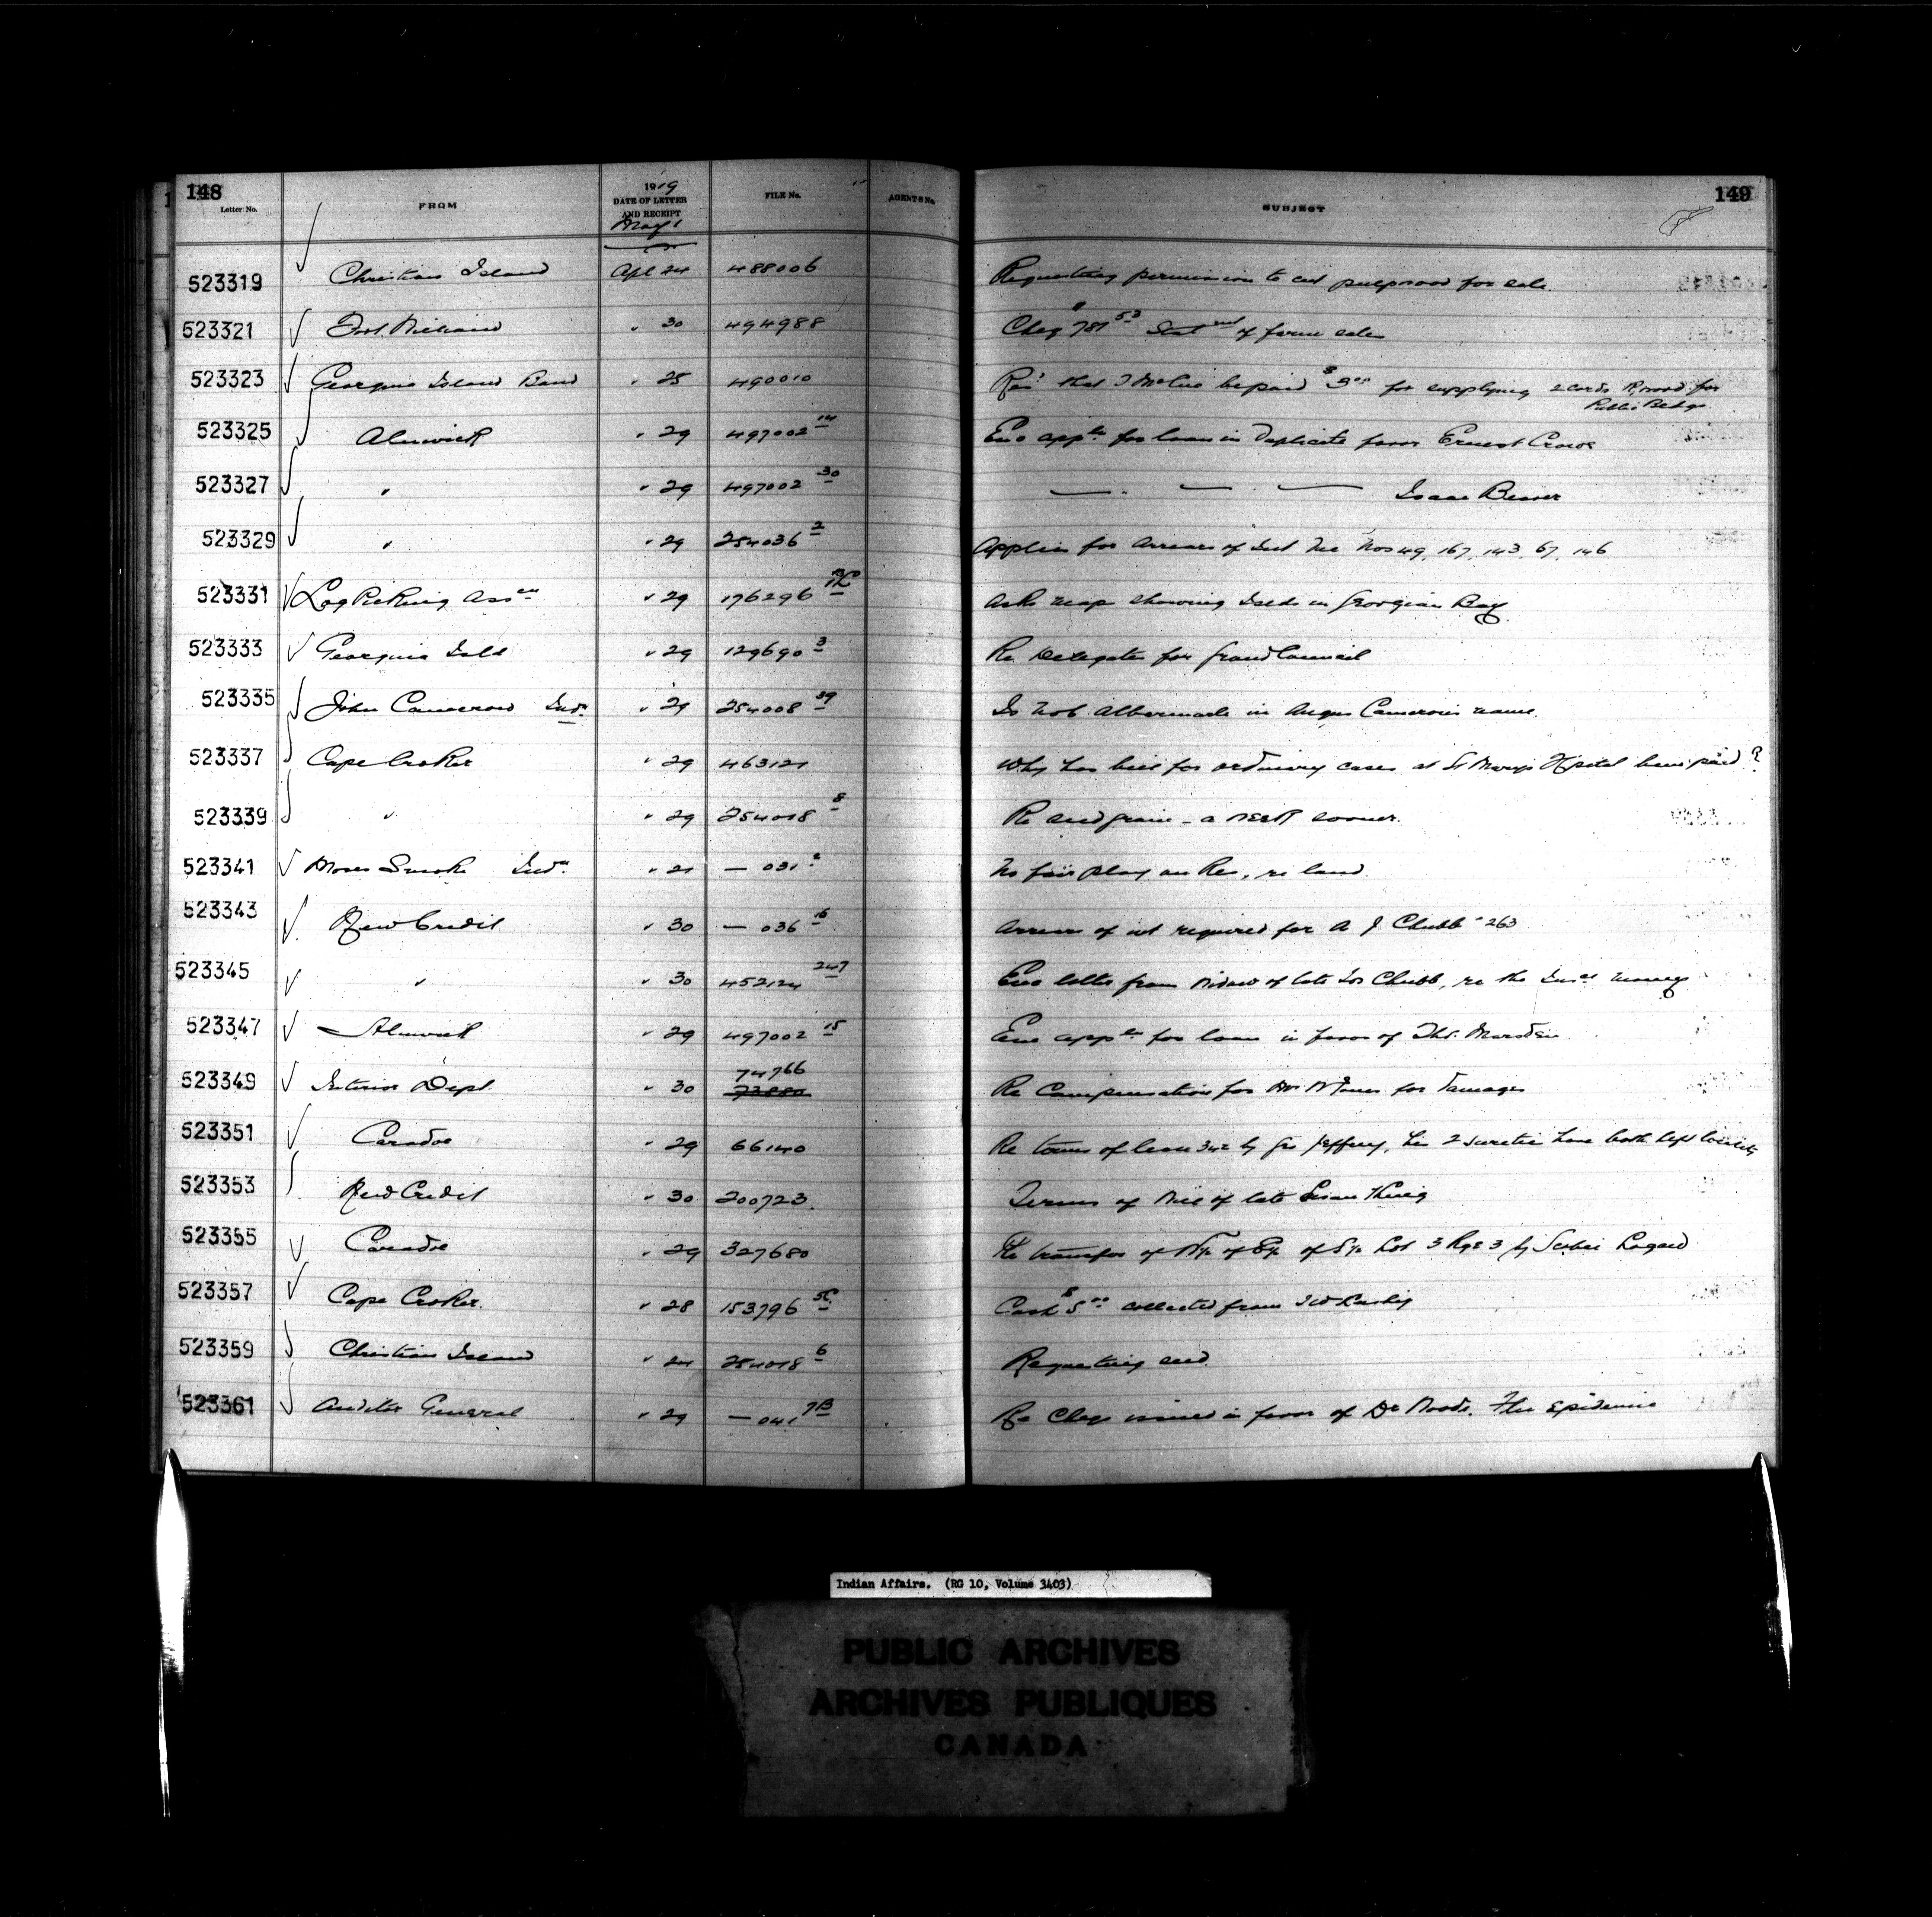 148
149
Letter No. FROM 1919 DATE OF LETTER AND RECEIPT FILE No. AGENTS No. SUBJECT
May 1
523319 Christian Island Apl 24 488006 Requesting permission to cut pulpwood for sale.
523321 Fort William " 30 494988 Cheq $781 53 of farm sales
523323 Georgina Island Band " 25 490010 Res: that be paid $9 00 for supplying 2 cords wood for
Public Bldgs
523325 Alnwick " 29 497002 14 Enc appln for loan in Duplicate favor Ernest Crowe
523327 " " 29 497002 30 — . — . — Isaac Beaver
523329 " " 29 254036 2 Applies for arrears of Int Nos 49, 167, 143, 67, 146
523331 Log Picking Assen " 29 176296 Asks map showing Islds in Georgian Bay.
523333 Georgina Isld " 29 129690 3 Re Delegates for Grand Council
523335 John Cameron Indn " 29 254008 39 Is Albermarle in Angus Cameron's name.
523337 Cape Croker " 29 463121 Why has bill for ordinary cases at St Mary's Hpital been paid?
523339 " " 29 254018 8 Re seed grain - a corner.
523341 Moses Smoke Indn " 21 — 031 2 No fair play on Res, re land.
523343 New Credit " 30 — 036 16 Arrears of int required for A J Chubb 263
523345 " " 30 452124 247 Enc letter from Widow of late Jos Chubb, re the money
523347 Alnwick " 29 497002 15 Enc appln for loan in favor of Thos. Marsden
523349 Interior Dept. " 30 74766 Re Compensation for Jones for damages
523351 Caradoc " 29 66140 Re terms of lease 342 by Geo Jeffrey, his 2 sureties have both left locality
523353 New Credit " 30 200723. Terms of Will of late Susan King
523355 Caradoc " 29 327680 Re transfer of N½ of E½ of S½ Lot 3 Rge 3 by Logan
523357 Cape Croker. " 28 153796 5C Cash $5 00 collected from
523359 Christian Island " 24 254018 6 Requesting seed.
523361 Auditor General " 29 — 041 7B Re Cheqs issued in favor of Dr Woods. Flu Epidemic
Indian Affairs. (RG 10, Volume 3403)
PUBLIC ARCHIVES
ARCHIVES PUBLIQUES
CANADA